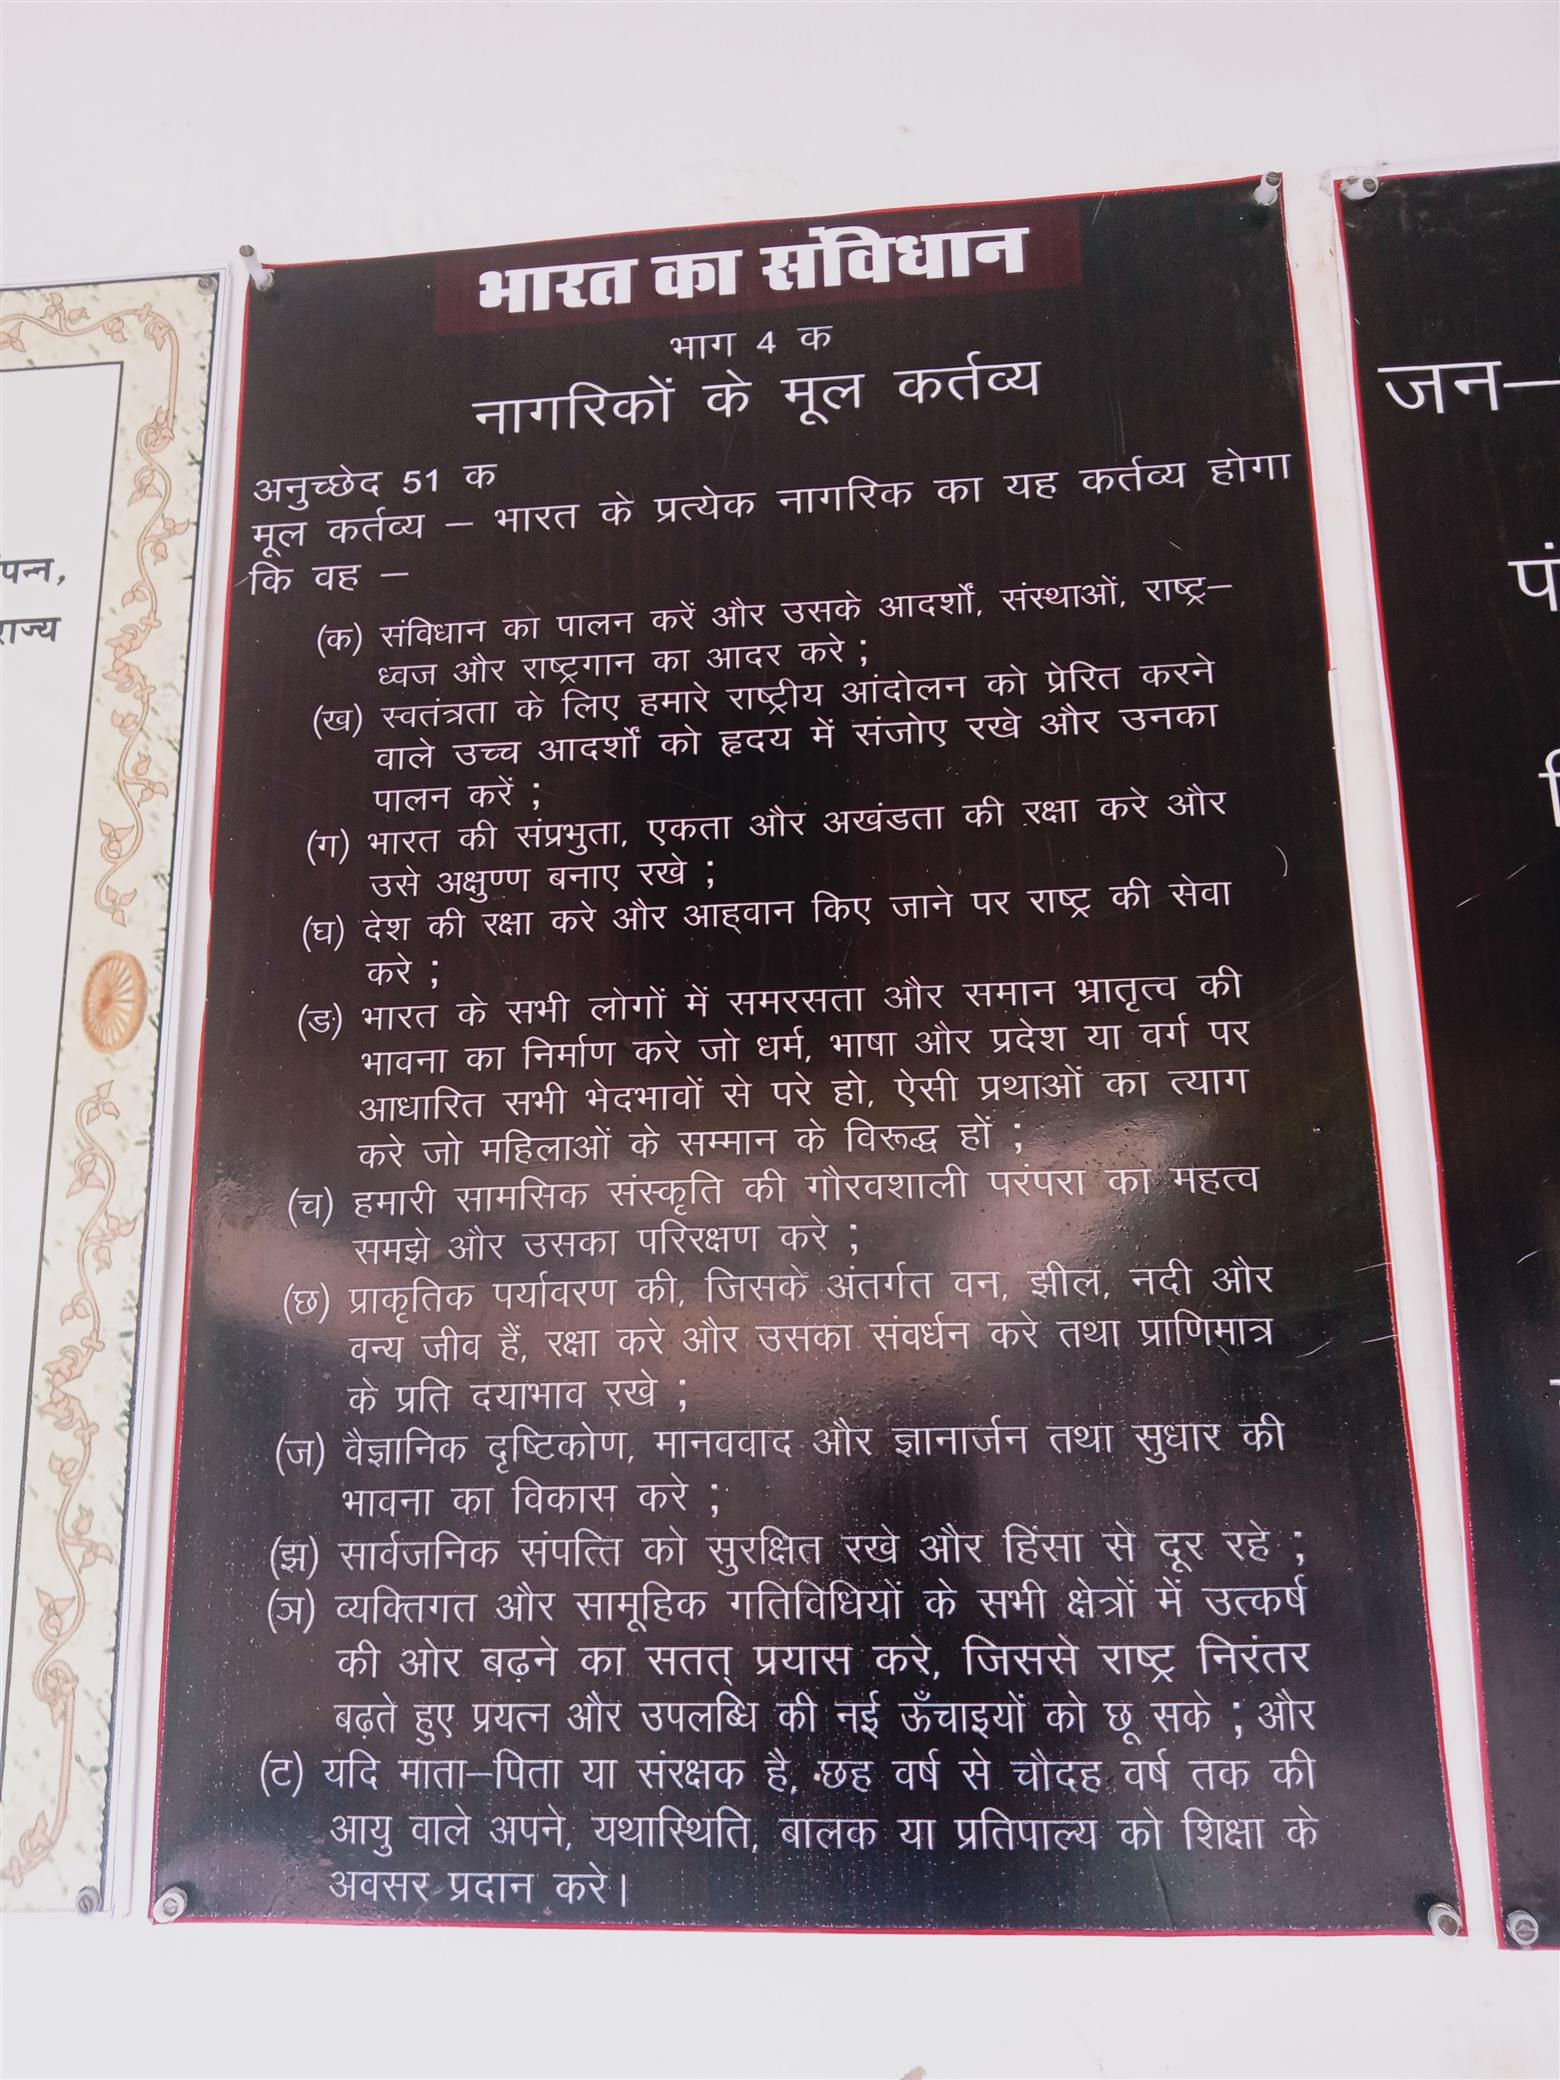 भारत का संविधान
भाग 4 क
नागरिकों के मूल कर्तव्य
अनुच्छेद 51 क
मूल कर्तव्य – भारत के प्रत्येक नागरिक का यह कर्तव्य होगा
कि वह –
(क) संविधान को पालन करें और उसके आदर्शों, संस्थाओं, राष्ट्र–
ध्वज और राष्ट्रगान का आदर करे ;
(ख) स्वतंत्रता के लिए हमारे राष्ट्रीय आंदोलन को प्रेरित करने
वाले उच्च आदर्शों को हृदय में संजोए रखे और उनका
पालन करें ;
(ग) भारत की संप्रभुता, एकता और अखंडता की रक्षा करे और
उसे अक्षुण्ण बनाए रखे ;
(घ) देश की रक्षा करे और आह्वान किए जाने पर राष्ट्र की सेवा
करे ;
(ङ) भारत के सभी लोगों में समरसता और समान भ्रातृत्व की
भावना का निर्माण करे जो धर्म, भाषा और प्रदेश या वर्ग पर
आधारित सभी भेदभावों से परे हो, ऐसी प्रथाओं का त्याग
करे जो महिलाओं के सम्मान के विरूद्ध हों ;
(च) हमारी सामसिक संस्कृति की गौरवशाली परंपरा का महत्व
समझे और उसका परिरक्षण करे ;
(छ) प्राकृतिक पर्यावरण की, जिसके अंतर्गत वन, झील, नदी और
वन्य जीव हैं, रक्षा करे और उसका संवर्धन करे तथा प्राणिमात्र
के प्रति दयाभाव रखे ;
(ज) वैज्ञानिक दृष्टिकोण, मानववाद और ज्ञानार्जन तथा सुधार की
भावना का विकास करे ;
(झ) सार्वजनिक संपत्ति को सुरक्षित रखे और हिंसा से दूर रहे ;
(ञ) व्यक्तिगत और सामूहिक गतिविधियों के सभी क्षेत्रों में उत्कर्ष
की ओर बढ़ने का सतत् प्रयास करे, जिससे राष्ट्र निरंतर
बढ़ते हुए प्रयत्न और उपलब्धि की नई ऊँचाइयों को छू सके ; और
(ट) यदि माता–पिता या संरक्षक है, छह वर्ष से चौदह वर्ष तक की
आयु वाले अपने, यथास्थिति, बालक या प्रतिपाल्य को शिक्षा के
अवसर प्रदान करे।
जन–